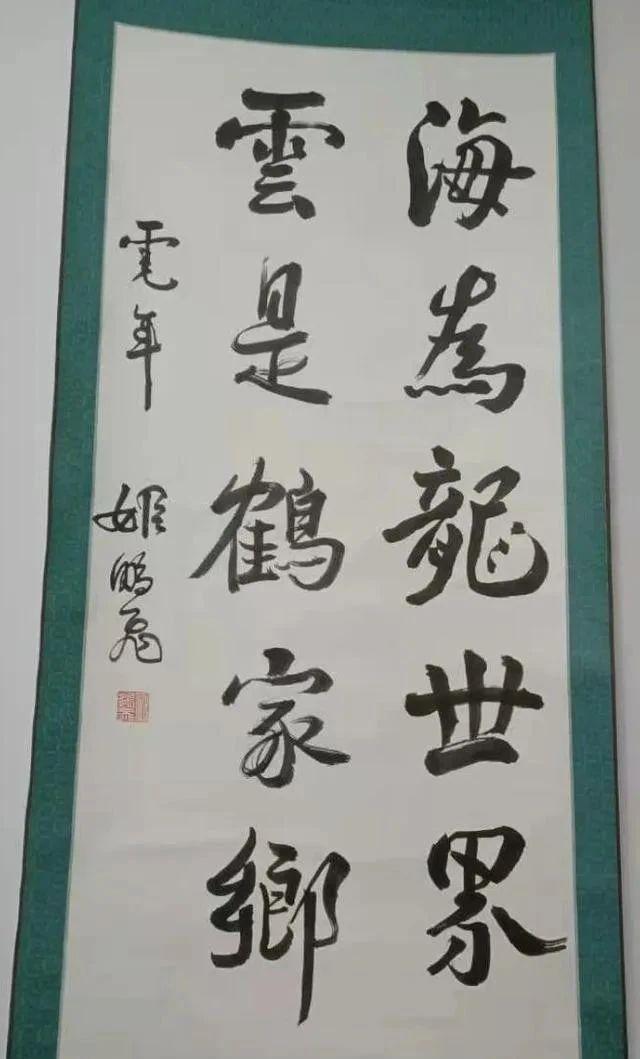 海為龍世界
雲是鶴家鄉
年 姬鵬飛